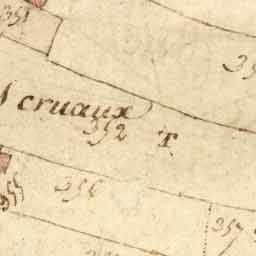 351
cruaux
352 T.
355
356
357